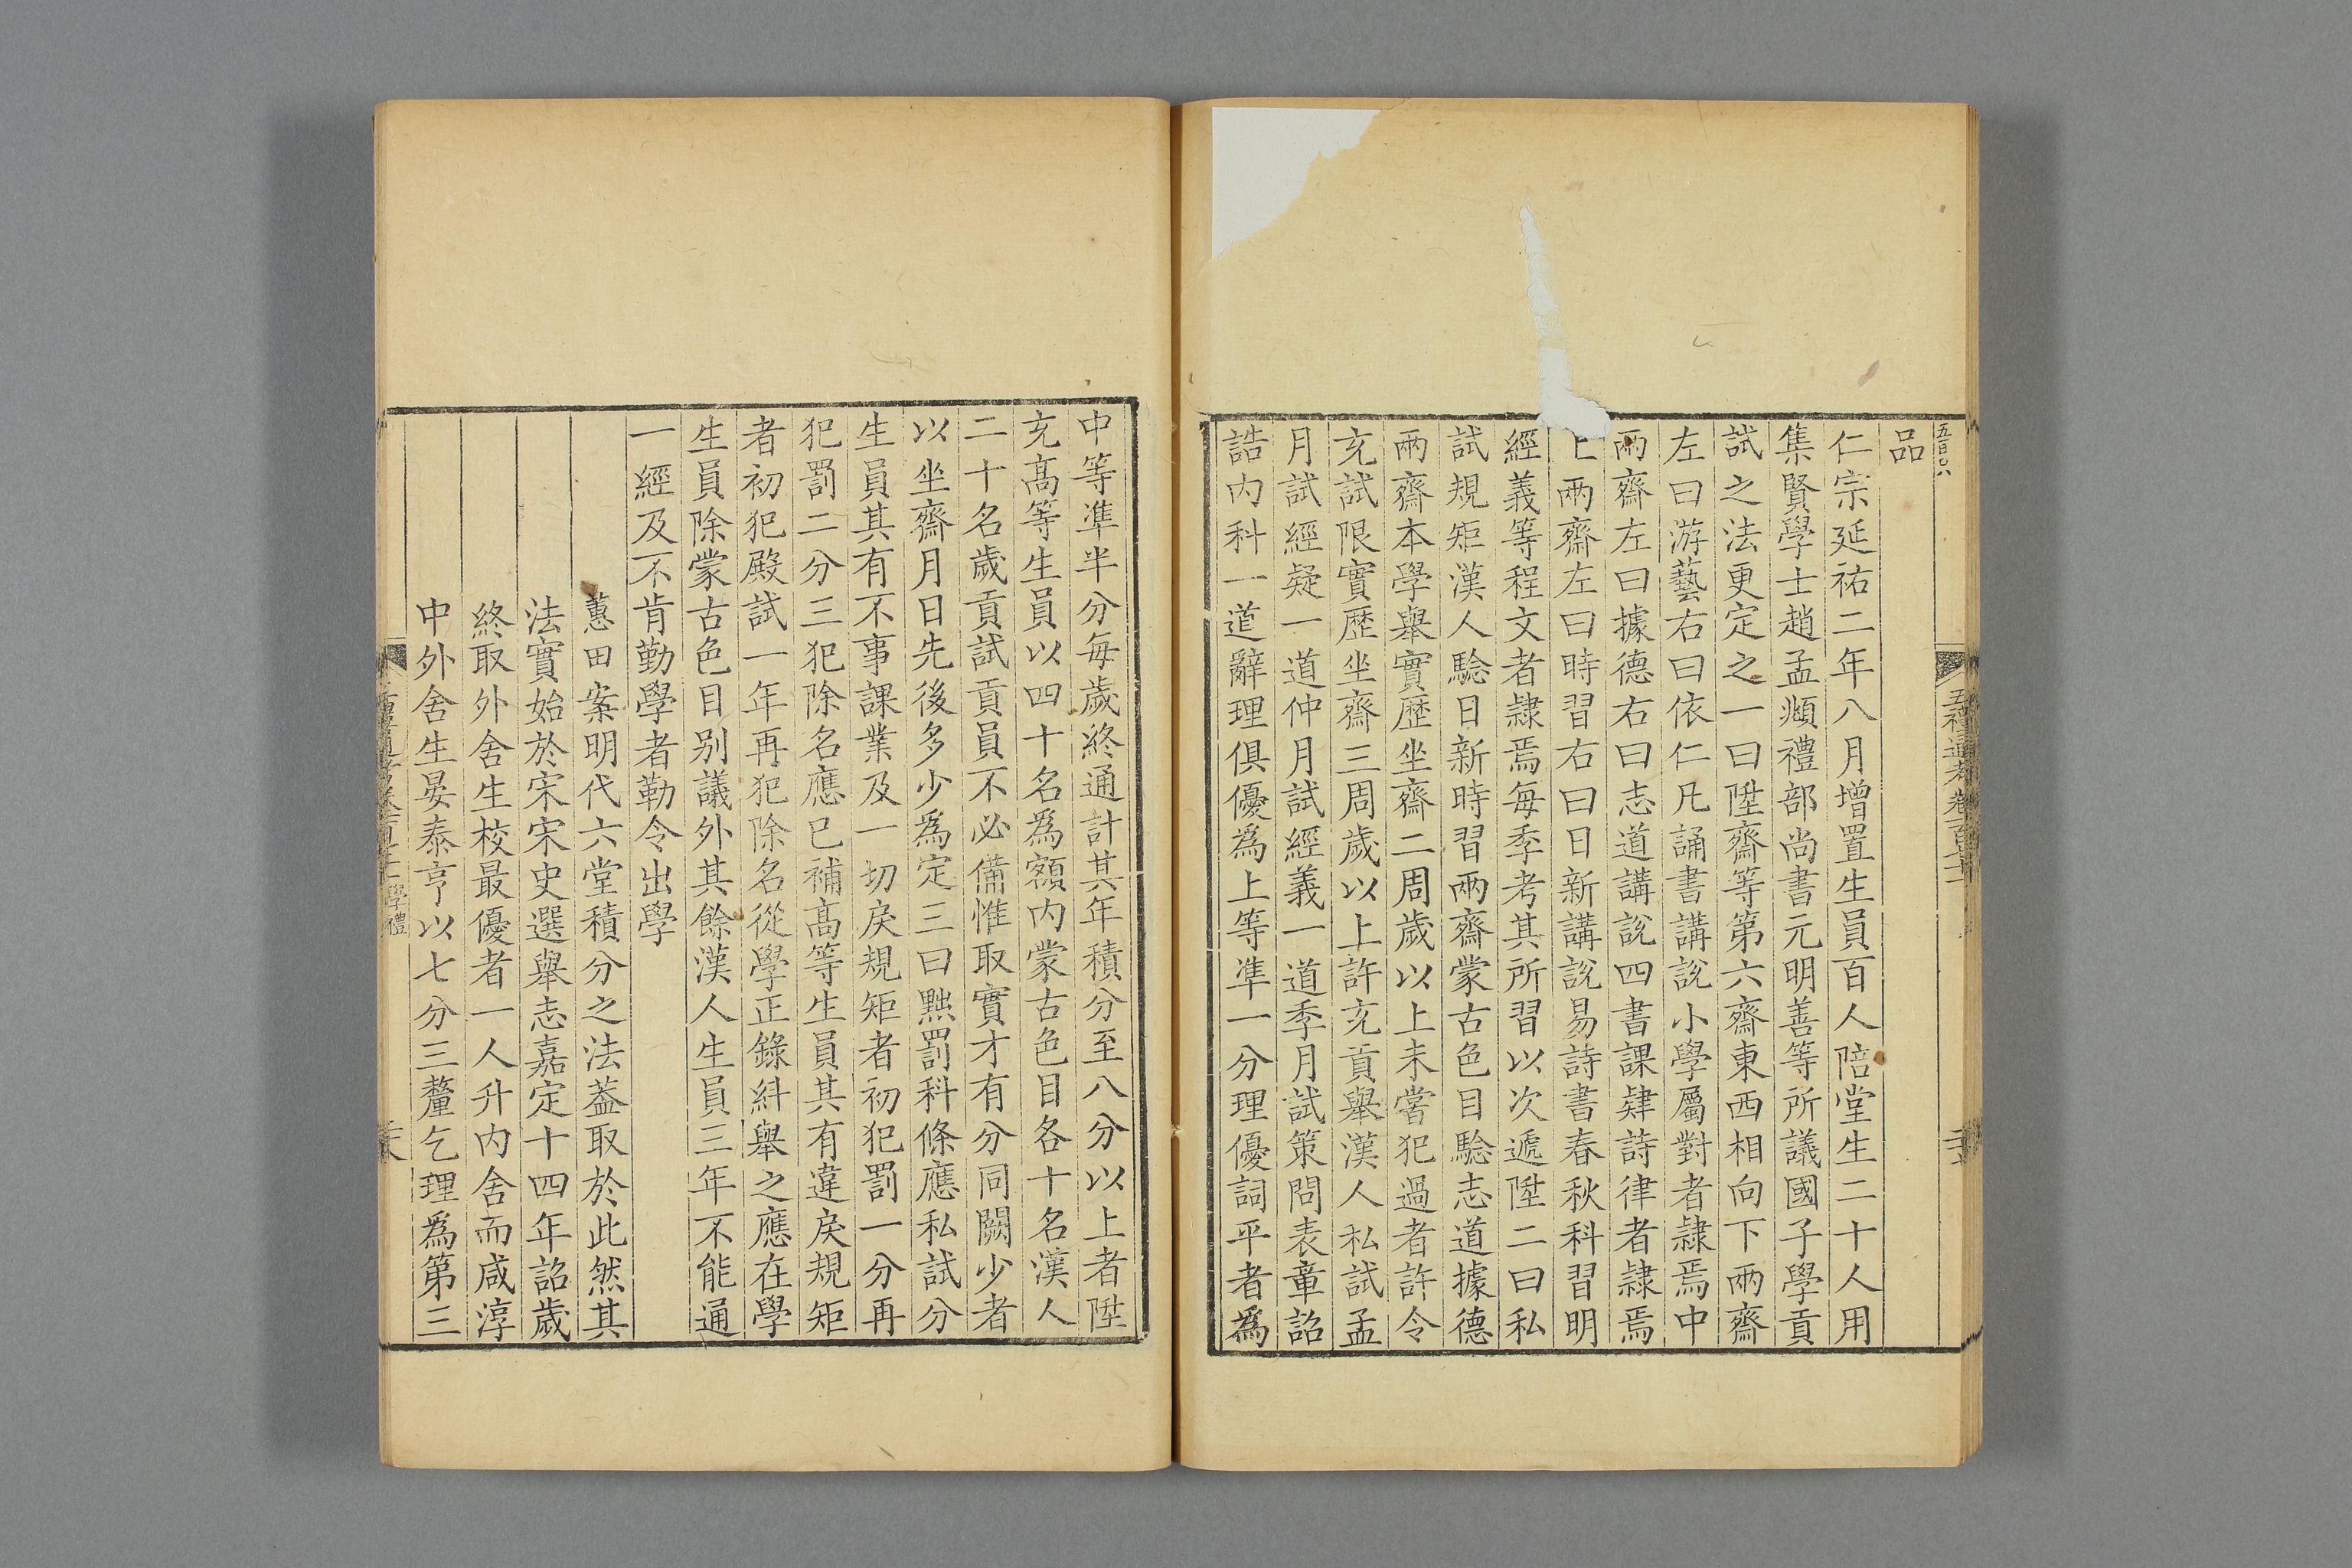 五百〇八
五禮通考卷一百七十一
品
仁宗延祐二年八月增置生員百人陪堂生二十人用
集賢學士趙孟頫禮部尚書元明善等所議國子學貢
試之法更定之一曰陞齋等第六齋東西相向下兩齋
左曰游藝右曰依仁凡誦書講說小學屬對者隷焉中
兩齋左曰據德右曰志道講說四書課肄詩律者隷焉
上兩齋左曰時習右曰日新講說易詩書春秋科習明
經義等程文者隷焉每季考其所習以次遞陞二曰私
試規矩漢人驗日新時習兩齋蒙古色目驗志道據德
兩齋本學舉實歷坐齋二周歲以上未嘗犯過者許令
充試限實歷坐齋三周歲以上許充貢舉漢人私試孟
月試經疑一道仲月試經義一道季月試策問表章詔
誥内科一道辭理俱優爲上等準一分理優詞平者爲
中等準半分每歲終通計其年積分至八分以上者陞
充高等生員以四十名爲額内蒙古色目各十名漢人
二十名歲貢試貢員不必備惟取實才有分同闕少者
以坐齋月日先後多少爲定三曰黜罰科條應私試分
生員其有不事課業及一切戾規矩者初犯罰一分再
犯罰二分三犯除名應已補高等生員其有違戾規矩
者初犯殿試一年再犯除名從學正錄糾舉之應在學
生員除蒙古色目别議外其餘漢人生員三年不能通
一經及不肯勤學者勒令出學
蕙田案明代六堂積分之法蓋取於此然其
法實始於宋宋史選舉志嘉定十四年詔歲
終取外舍生校最優者一人升内舍而咸淳
中外舍生晏泰亨以七分三釐乞理爲第三
學禮